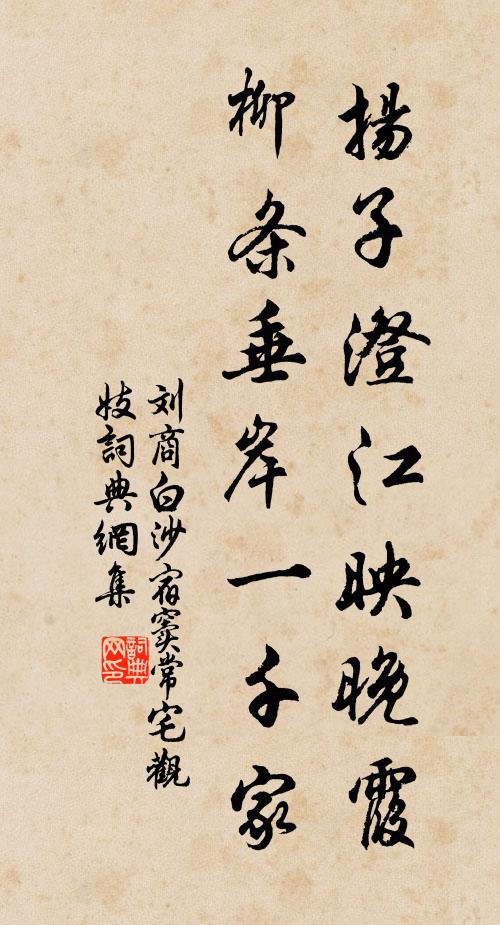 揚子澄江映晚霞
柳条垂岸一千家
刘商白沙宿窦常宅觀
妓詞典網集
詞典
网印